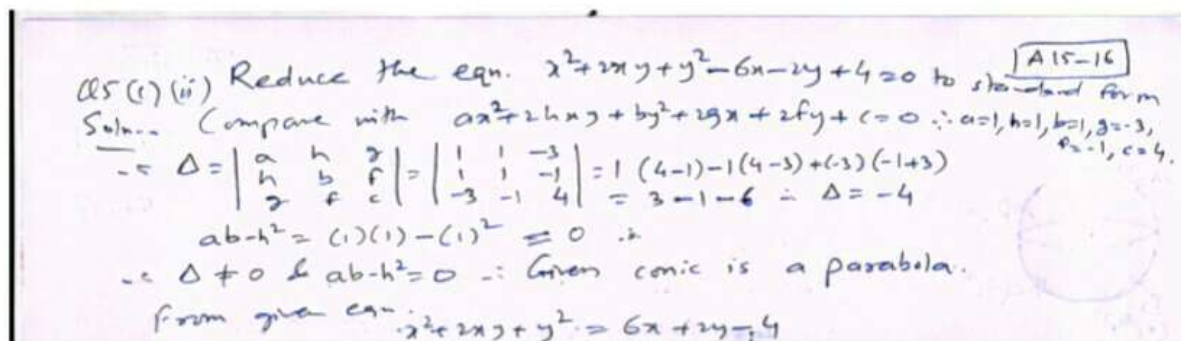 A15-16
Q5 (c) (ii) Reduce the eqn. x²+2xy+y²-6x-2y+4=0 to standard form
Soln.. Compare with ax²+2hxy+by²+2gx+2fy+c=0 ∴ a=1, h=1, b=1, g=-3,
f=-1, c=4.
∴ Δ = | a h g | = | 1 1 -3 | = 1 (4-1)-1(4-3)+(-3)(-1+3)
| h b f | | 1 1 -1 |
| g f c | | -3 -1 4 | = 3-1-6 ∴ Δ = -4
ab-h² = (1)(1)-(1)² = 0 ∴
∴ Δ ≠ 0 & ab-h²=0 ∴ Given conic is a parabola.
From given eqn.
x²+2xy+y² = 6x+2y-4